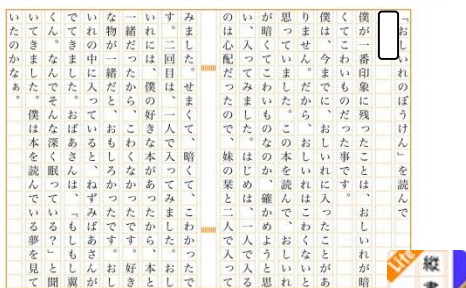 「おしいれのぼうけん」を読んで
僕が一番印象に残ったことは、おしいれが暗
くてこわいものだった事です。
僕は、今までに、おしいれに入ったことがあ
りません。だから、おしいれはこわくないと
思っていました。この本を読んで、おしいれ
が暗くてこわいものなのか、確かめようと思
い、入ってみました。はじめは、一人で入る
のは心配だったので、妹の栞と二人で入って
みました。せまくて、暗くて、こわかったで
す。二回目は、一人で入ってみました。おし
いれには、僕の好きな本があったから、本と
一緒だったから、こわくなかったです。好き
な物が一緒だと、おもしろかったです。おし
いれの中に入っていると、ねずみばあさんが
でてきました。おばあさんは、「もしもし翼
くん。なんでそんな深く眠っている？」と聞
いてきました。僕は本を読んでいる夢を見て
いたのかなぁ。
Lite
縦
書